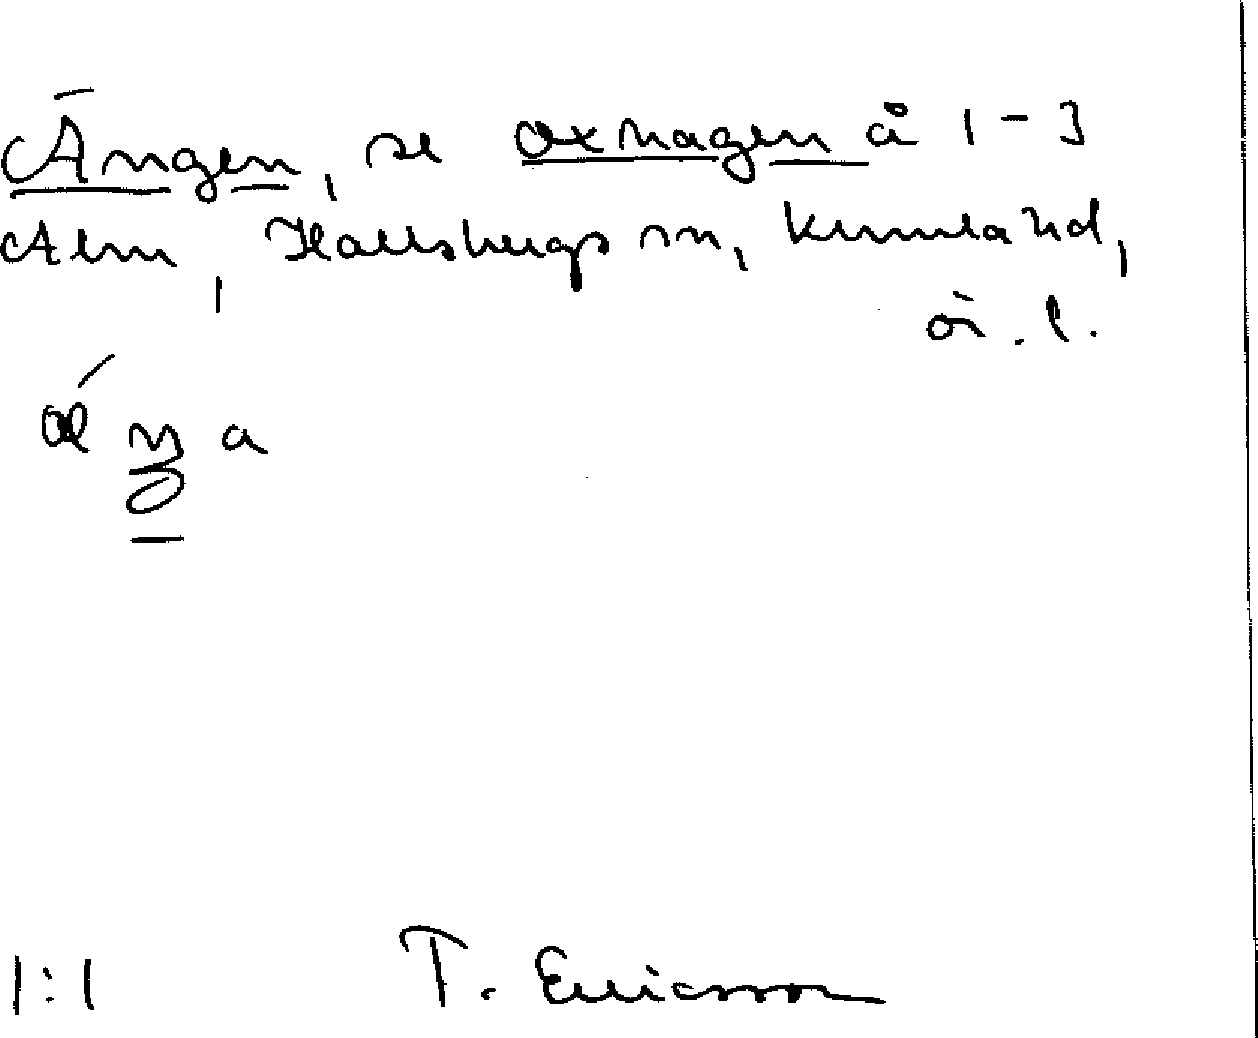 Ängen, se Oxhagen å 1-3
Alm, Hallsbergs sn, Kumla hd,
ör. l.
a
1:1 T. Ericsson